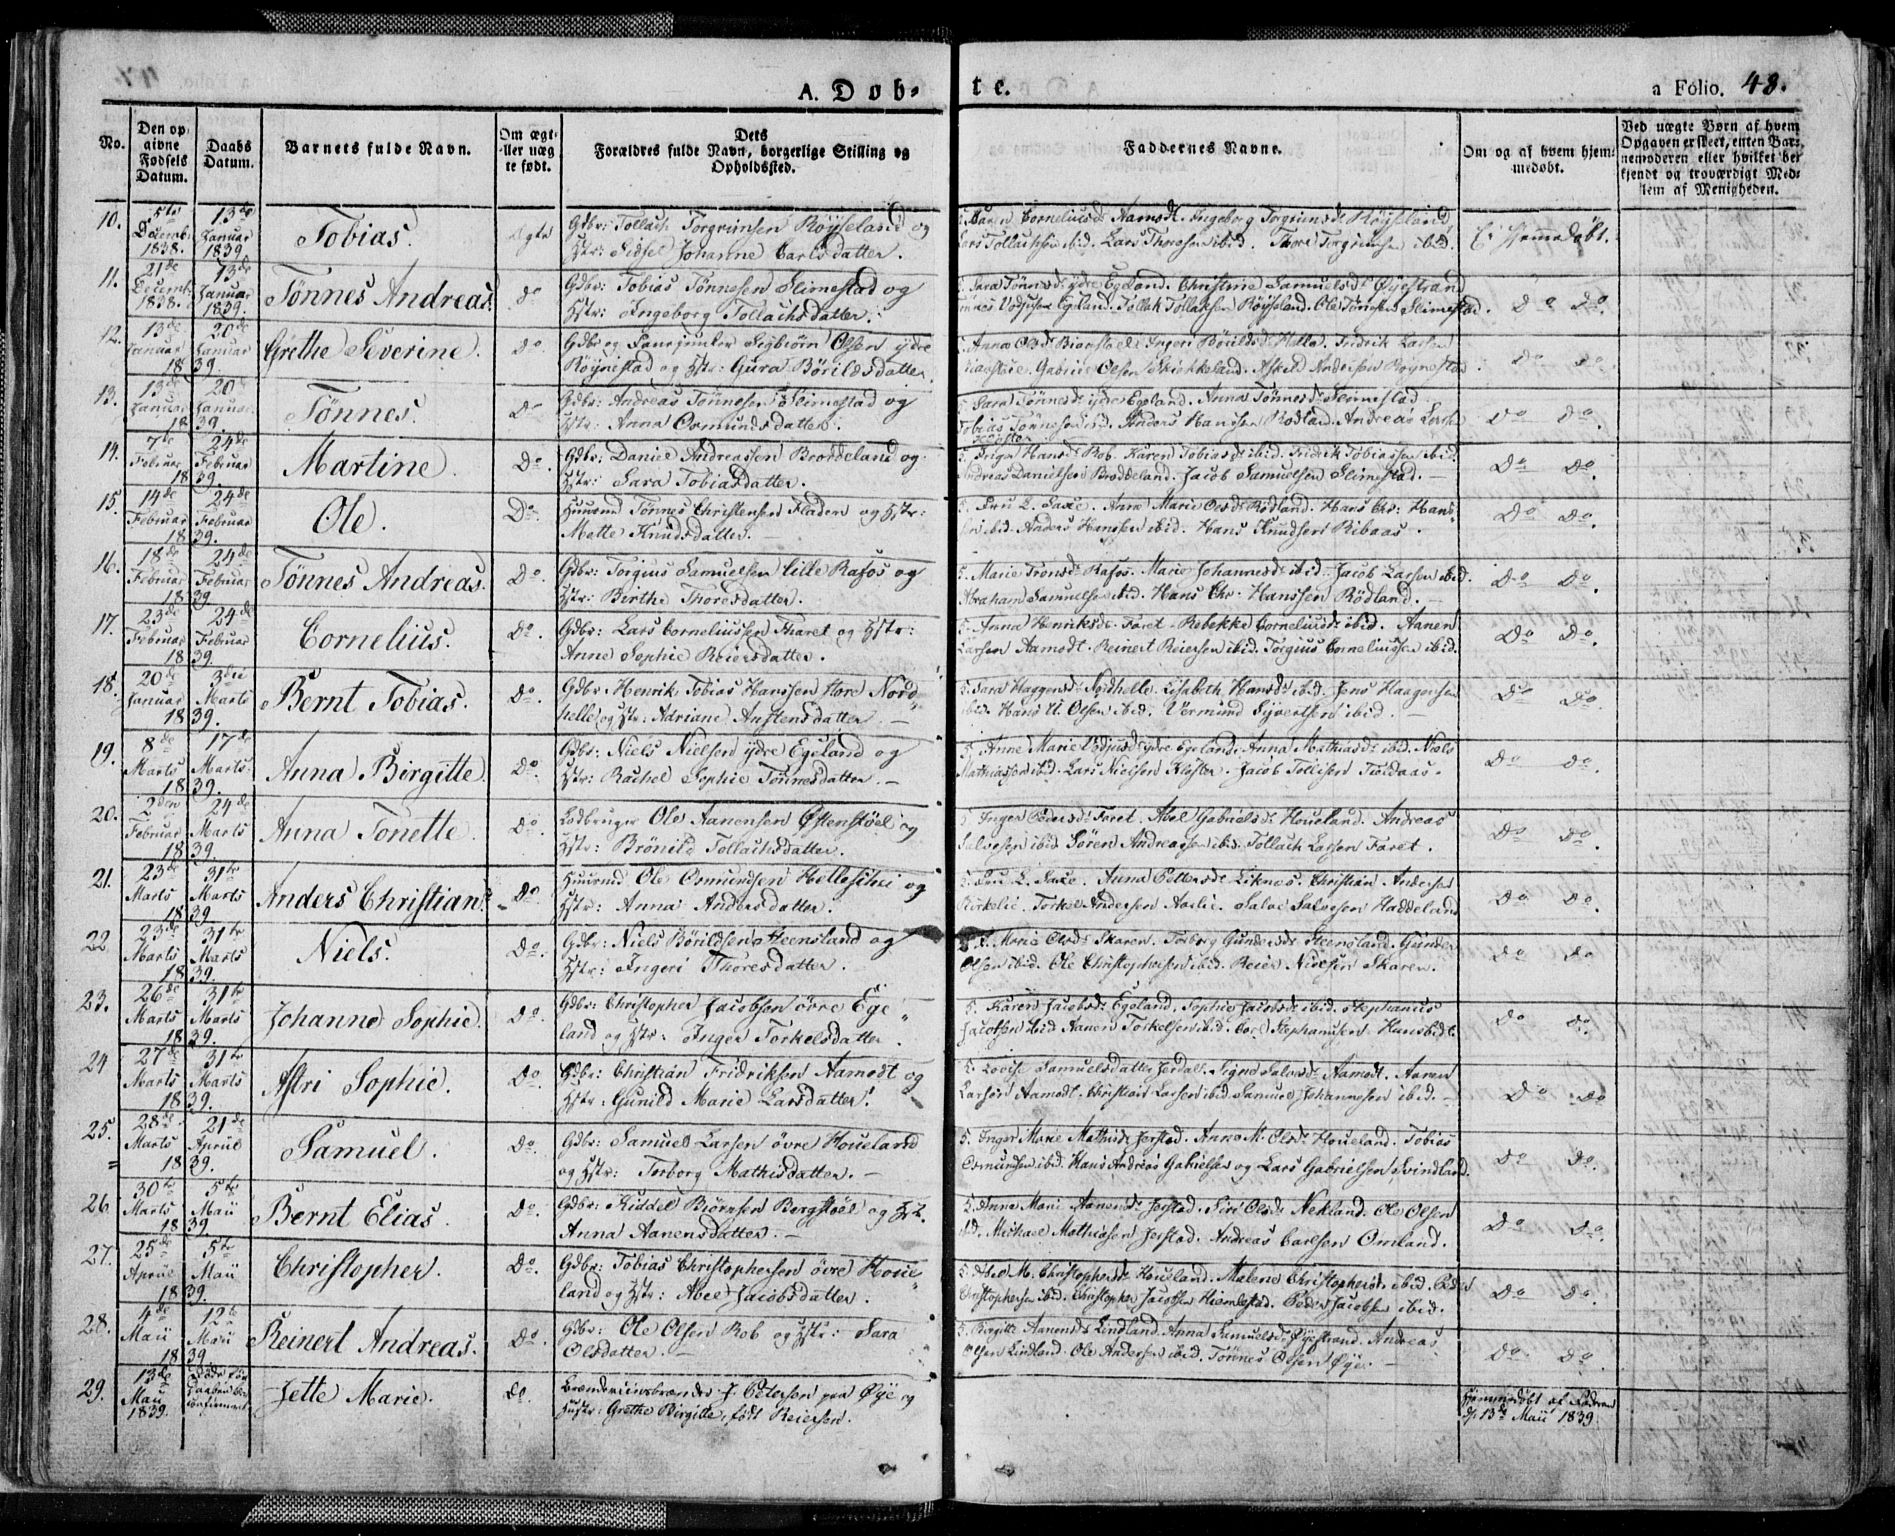 A. Døb-
te.
a Folio. 48.
No.
Den op-
givne
Fødsels
Datum.
Daabs
Datum.
Barnets fulde Navn.
Om ægte
eller uæg
te født.
Dets
Forældres fulde Navn, borgerlige Stilling og
Opholdssted.
Faddernes Navne.
Om og af hvem hjem-
medøbt.
Ved uægte Børn af hvem
Opgaven er skeet, enten Bar-
nemoderen eller hvilket be-
kjendt og troværdigt Med-
lem af Menigheden.
10. 5te Decemb. 1838. 13de Januar 1839. Tobias. Ægte
Gdbr: Tollach Torgrimsen Røyseland og
Hstr: Sidsel Johanne Carlsdatter.
Ingeborg Torgrimsdr Røyseland
Lars Tollachsen ibid. Lars Thoresen ibid. Thore Torgrimsen ibid.
Ei Hjemmedøbt.
11. 21de Decemb. 1838. 13de Januar 1839. Tønnes Andreas. do
Gdbr: Tobias Tønnesen Slimestad og
Hstr: Ingeborg Tollachsdatter.
Sara Tønnesdr ydre Egeland. Christine Samuelsdr Øyestrand
Egeland. Tollak Tollaksen Røyseland. Ole Tønnesen Slimestad.
Do Do.
12. 13de Januar 20de Januar 1839. Grethe Severine. do
Gdbr og Sigbiørn Olsen ydre
Røynestad og Hstr: Gura Børildsdatter.
Fridrik Larsen
Gabriel Olsen Askild Andersen Røynestad
Do do.
13. 13de Januar 20de Januar 1839. Tønnes. Do
Gdbr: Andreas Tønnesen Slimestad og
Hstr: Anna Osmundsdatter.
Sara Tønnesdr ydre Egeland. Anna Tønnesdr Slimestad
Tobias Tønnesen ibid. Anders Hansen Rødland. Andreas Larsen
Kloster
Do Do.
14. 7de Februar 24de Februar 1839. Martine. Do.
Gdbr: Daniel Andreassen Brordeland og
Hstr: Sara Tobiasdatter.
Hansdr Rob. Karen Tobiasdr ibid. Fridrik Tobiassen ibid.
Andreas Danielsen Brodeland. Jacob Samuelsen Slimestad.
Do Do.
15. 14de Februar 24de Februar 1839. Ole. Do.
Huusmd Tønnes Christensen Fladen og Hstr:
Mette Knudsdatter.
Anne Marie Olsdr Rødland. Hans Chr: Hans-
sen ibid. Anders Hanssen ibid. Hans Knudsen Ribaas.
Do Do.
16. 18de Februar 24de Februar 1839. Tønnes Andreas. Do.
Gdbr: Torgius Samuelsen lille Rafos og
Hstr: Birthe Thoresdatter.
5. Marie Tronsdr Rafos. Marie Johannesdr ibid. Jacob Larsen ibid.
Abraham Samuelsen ibid. Hans Chr. Hanssen Rødland.
Do Do.
17. 23de Februar 24de Februar 1839. Cornelius. Do.
Gdbr: Lars Corneliussen Faret og Hstr:
Anne Sophie Reiersdatter.
5. Anna Henriksdr Faret. Rebekke Corneliusdr ibid. Aanen
Larsen Aamodt. Reinert Reiersen ibid. Torgius Corneliussen ibid.
Do Do.
18. 20de Januar 3die Marts 1839. Bernt Tobias. Do.
Gdbr Henrik Tobias Hanssen store Nord-
helle og Hstr: Adriane Anstensdatter.
5. Sara Haagensdr Nordhelle. Lisabeth Hansdr ibid. Jens Haagensen
ibid. Hans H. Olsen ibid. Vermund Syvertsen ibid.
Do Do.
19. 8de Marts 17de Marts 1839. Anna Birgitte Do.
Gdbr: Niels Nielsen ydre Egeland og
Hstr: Rachel Sophie Tønnesdatter.
5. Anne Marie ydre Egeland. Anna Mathiasdr ibid. Niels
Mathiassen ibid. Lars Nielsen Kloster. Jacob Tollisen
Do Do.
20. 2den Februar 24de Marts 1839. Anna Tonette. Do.
Ledbruger Ole Aanensen Østenstøel og
Hstr: Brønild Tollachsdatter.
5. Inger Pedersdr Faret. Abel Gabrielsdr Houeland. Andreas
Salvesen ibid. Søren Andreassen ibid. Tollach Larsen Faret.
Do Do.
21. 23de Marts 31te Marts 1839. Anders Christian. Do
Huusmd Ole Osmundsen og
Hstr: Anna Andersdatter.
Anna Pettersdr Liknes. Christian Andersen
Kirkelie. Torkel Andersen Aarlie. Salve Salvesen Haddeland
Do Do.
22. 23de Marts 31te Marts 1839. Niels. Do.
Gdbr: Niels Børildsen Steensland og
Hstr: Ingeri Thoresdatter.
Marie Olsdr Skaren. Torborg Gundersdr Steensland. Gunder
Olsen ibid. Ole Christophersen ibid. Reier Nielsen Skaren.
Do Do
23. 26de Marts 31te Marts 1839. Johanne Sophie. Do.
Gdbr: Christopher Jacobsen øvre Ege-
land og Hstr: Inger Torkelsdatter.
5. Karen Jacobsdr Egeland. Sophie Jacobsdr ibid. Stephanus
Jacobsen ibid. Aanen Torkelsen ibid. Stephanusen
Do do.
24 27de Marts 31te Marts 1839. Astri Sophie. Do
Gdbr: Christian Fridriksen Aamodt og
Hstr: Gunild Marie Larsdatter.
5. Lovise Samuelsdatter Jerdal. Signe Salvesdr Aamodt. Aanen
Larsen Aamodt. Christian Larsen ibid. Samuel Johannesen ibid.
Do Do
25. 28de Marts 21de April 1839. Samuel. Do.
Gdbr: Samuel Larsen øvre Houeland
og Hstr: Torborg Mathisdatter.
5. Inger Marie Mathisdr Jerstad. Anne M. Olsdr Houeland. Tobias
Osmundsen ibid. Hans Andreas Gabrielsen og Lars Gabrielsen Svindland.
Do Do.
26. 30te Marts 5te Maii 1839. Bernt Elias. Do.
Gdbr: Kiddel Biørnsen Bergstøel og Hstr.
Anna Aanensdatter.
5. Anna Marie Aanensdr Jerstad. Siri Olsdr Nekland. Ole Olsen
ibid. Michael Mathiasen Jerstad. Andreas Carlsen Omland.
Do Do.
27. 25de April 5te Maii 1839. Christopher. Do.
Gdbr: Tobias Christophersen øvre Houe-
land og Hstr: Abel Jacobsdatter.
5. Abel M. Christophersdr Houeland. Malene Christophersdr ibid. Peder
Christophersen ibid. Christopher Jacobsen Hiemlestad. Peder Jacobsen ibid.
Do Do.
28. 4de Maii 12te Maii 1839. Reinert Andreas. Do.
Gdbr: Ole Olsen Rob og Hstr: Sara
Olsdatter.
5. Birgitte Aanensdr Lindland. Anna Samuelsdr Øyestrand. Andreas
Olsen Lindland. Ole Andersen ibid. Tønnes Olsen Øye.
Do Do.
29. 13de Maii 1839. Døde før Daaben blev confirmeret Jette Marie. do.
J. Petersen paa Øye og
Hustr: Grethe Birgitte, født Reiersen.
Hjemmedøbt af Faderen
d. 13de Maii 1839.